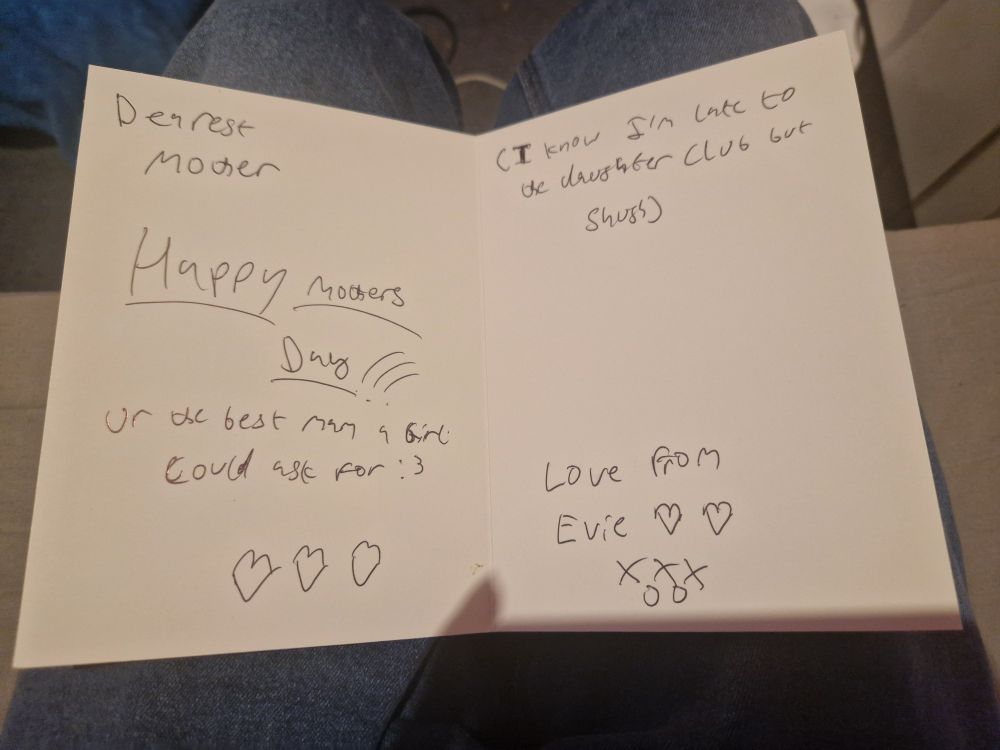 Dearest
Mother
Happy Mothers
Day
Ur the best mam a Girl
Could ask for :3
(I know I'm late to
the daughter Club but
shush)
Love From
Evie ♡ ♡
xxx
oo